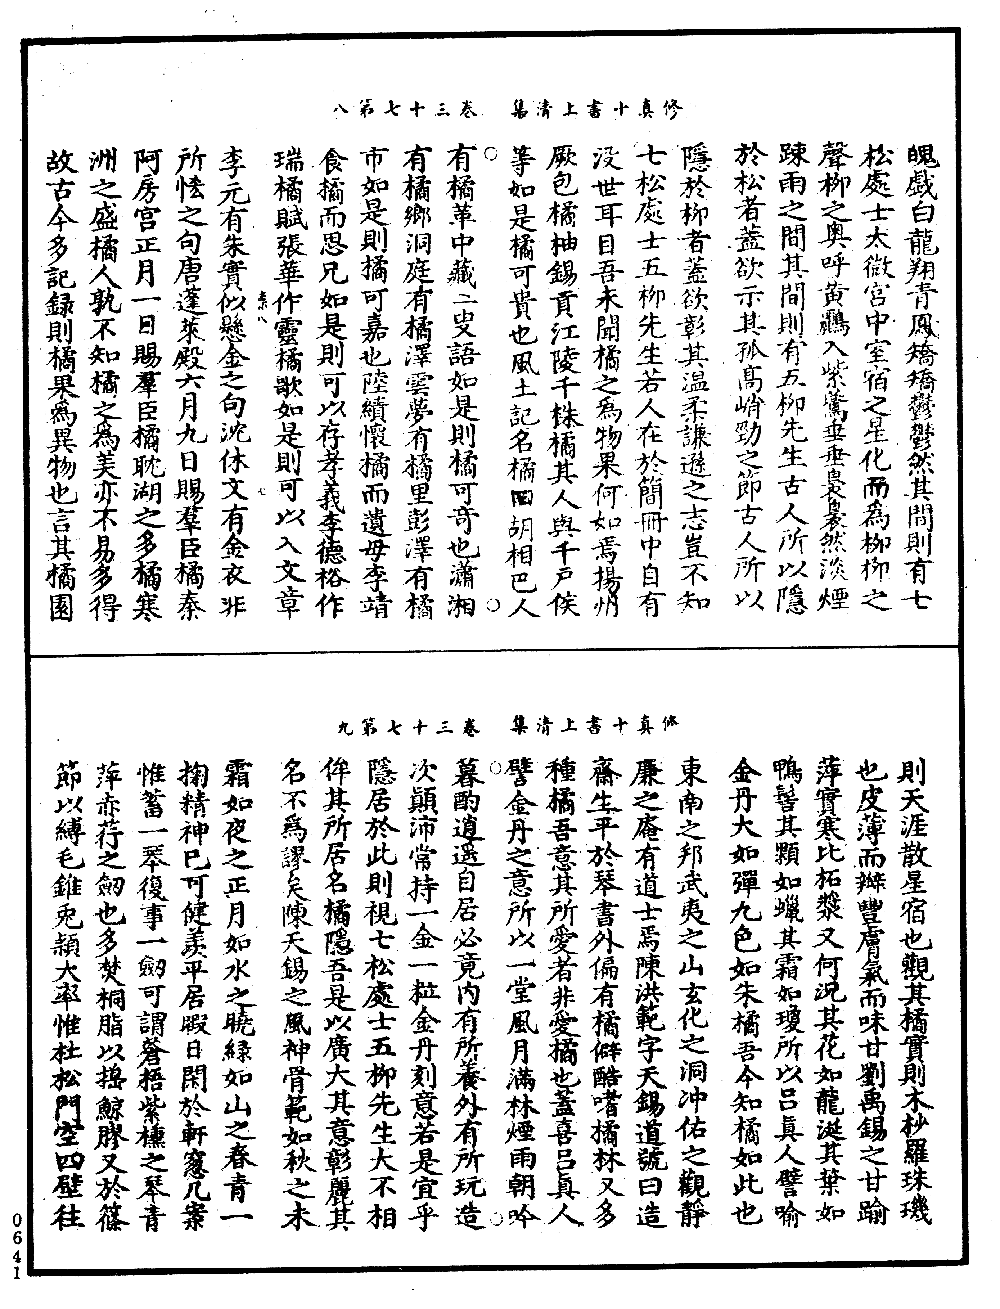 修真十書上清集　卷三十七第八
魄戲白龍翔青鳳矯矯鬱鬱然其間則有七
松處士太微宮中室宿之星化而為柳柳之
聲柳之奧呼黃鸝入紫鶯垂垂裊裊然淡煙
踈雨之間其間則有五柳先生古人所以隱
於松者蓋欲示其孤高峭勁之節古人所以
隱於柳者蓋欲彰其温柔謙遜之志豈不知
七松處士五柳先生若人在於簡冊中自有
没世耳目吾未聞橘之為物果何如焉揚州
厥包橘柚錫貢江陵千株橘其人與千戶侯
等如是橘可貴也風土記名橘曰胡相巴人
有橘革中藏二叟語如是則橘可奇也瀟湘
有橘鄉洞庭有橘澤雲夢有橘里彭澤有橘
市如是則橘可嘉也陸績懷橘而遺母李靖
食橘而思兄如是則可以存孝義李德裕作
瑞橘賦張華作靈橘歌如是則可以入文章
李元有朱實似懸金之句沈休文有金衣非
所恡之句唐蓬萊殿六月九日賜羣臣橘秦
阿房宮正月一日賜羣臣橘耽湖之多橘寒
洲之盛橘人孰不如橘之為美亦不易多得
故古今多記録則橘果為異物也言其橘園
修真十書上清集　卷三十七第九
則天涯散星宿也觀其橘實則木杪羅珠璣
也皮薄而辦豐膚氣而味甘劉禹錫之甘踰
萍實寒比柘漿又何況其花如龍涎其葉如
鴨髻其顆如蠟其霜如瓊所以吕真人譬喻
金丹大如彈丸色如朱橘吾今知橘如此也
東南之邦武夷之山玄化之洞冲佑之觀靜
廉之庵有道士焉陳洪範字天錫道號曰造
齋生平於琴書外偏有橘僻酷嗜橘林又多
種橘吾意其所愛者非愛橘也蓋喜吕真人
譬金丹之意所以一堂風月滿林煙雨朝吟
暮酌逍遥自居必竟内有所養外有所玩造
次顛沛常持一金一粒金丹刻意若是宜乎
隱居於此則視七松處士五柳先生大不相
侔其所居名橘隱吾是以廣大其意彰麗其
名不為謬矣陳天錫之風神骨範如秋之木
霜如夜之正月如水之曉緑如山之春青一
掬精神已可健羨平居暇日閑於軒窓几案
惟蓄一琴復事一劒可謂蒼梧紫檀之琴青
萍赤荇之劒也多焚桐脂以搗鯨膠又於篠
節以縛毛錐兎穎大率惟杜松門空四壁往
0641